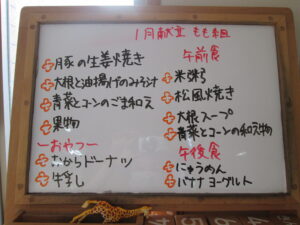 1月献立 もも組
豚の生姜焼き
大根と油揚げのみそ汁
青菜とコーンのごま和え
果物
ーおやつー
おからドーナツ
牛乳
午前食
米粥
松風焼き
大根スープ
青菜とコーンの和え物
午後食
にゅうめん
バナナヨーグルト